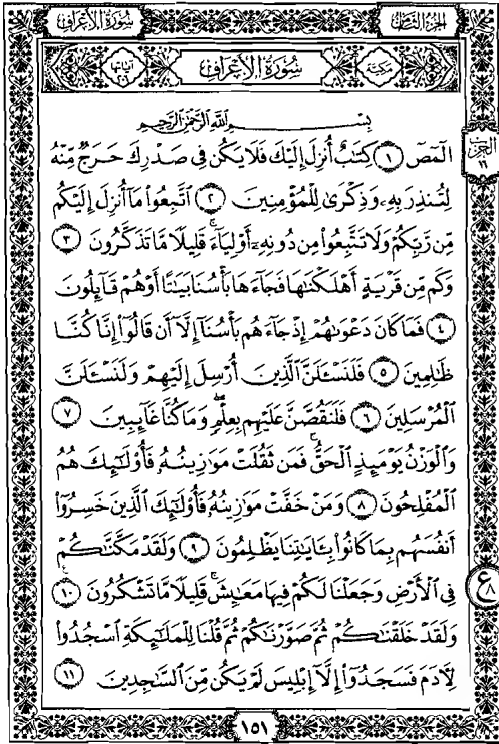 سُورَةُ الأَعْرَافِ
الجُزْءُ الثَّامِنُ
آيَاتُهَا ٢٠٦
سُورَةُ الأَعْرَافِ
مَكِّيَّة
بِسْمِ ٱللَّهِ ٱلرَّحْمَٰنِ ٱلرَّحِيمِ
الٓمٓصٓ ١ كِتَٰبٌ أُنزِلَ إِلَيْكَ فَلَا يَكُن فِى صَدْرِكَ حَرَجٌ مِّنْهُ
لِتُنذِرَ بِهِۦ وَذِكْرَىٰ لِلْمُؤْمِنِينَ ٢ ٱتَّبِعُوا۟ مَآ أُنزِلَ إِلَيْكُم
مِّن رَّبِّكُمْ وَلَا تَتَّبِعُوا۟ مِن دُونِهِۦٓ أَوْلِيَآءَ ۗ قَلِيلًا مَّا تَذَكَّرُونَ ٣
وَكَم مِّن قَرْيَةٍ أَهْلَكْنَٰهَا فَجَآءَهَا بَأْسُنَا بَيَٰتًا أَوْ هُمْ قَآئِلُونَ
٤ فَمَا كَانَ دَعْوَىٰهُمْ إِذْ جَآءَهُم بَأْسُنَآ إِلَّآ أَن قَالُوٓا۟ إِنَّا كُنَّا
ظَٰلِمِينَ ٥ فَلَنَسْـَٔلَنَّ ٱلَّذِينَ أُرْسِلَ إِلَيْهِمْ وَلَنَسْـَٔلَنَّ
ٱلْمُرْسَلِينَ ٦ فَلَنَقُصَّنَّ عَلَيْهِم بِعِلْمٍ ۖ وَمَا كُنَّا غَآئِبِينَ ٧
وَٱلْوَزْنُ يَوْمَئِذٍ ٱلْحَقُّ ۚ فَمَن ثَقُلَتْ مَوَٰزِينُهُۥ فَأُو۟لَٰٓئِكَ هُمُ
ٱلْمُفْلِحُونَ ٨ وَمَنْ خَفَّتْ مَوَٰزِينُهُۥ فَأُو۟لَٰٓئِكَ ٱلَّذِينَ خَسِرُوٓا۟
أَنفُسَهُم بِمَا كَانُوا۟ بِـَٔايَٰتِنَا يَظْلِمُونَ ٩ وَلَقَدْ مَكَّنَّٰكُمْ
فِى ٱلْأَرْضِ وَجَعَلْنَا لَكُمْ فِيهَا مَعَٰيِشَ ۗ قَلِيلًا مَّا تَشْكُرُونَ ١٠
وَلَقَدْ خَلَقْنَٰكُمْ ثُمَّ صَوَّرْنَٰكُمْ ثُمَّ قُلْنَا لِلْمَلَٰٓئِكَةِ ٱسْجُدُوا۟
لِـَٔادَمَ فَسَجَدُوٓا۟ إِلَّآ إِبْلِيسَ لَمْ يَكُن مِّنَ ٱلسَّٰجِدِينَ ١١
الحزب
١٦
ع
٨
١٥١